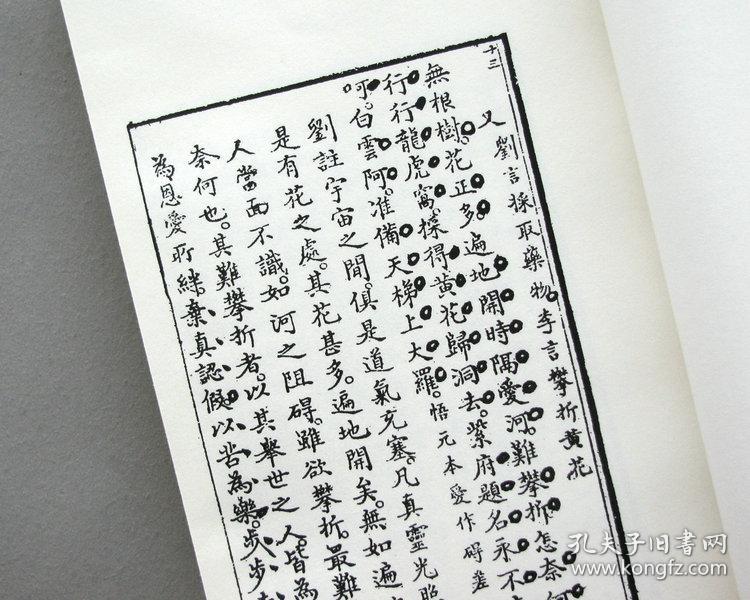 十三
又 劉言採取藥物李言攀折黃花
無根樹。花正多。遍地開時隔愛河。難攀折。怎奈何。
行行龍虎窩。採得黃花歸洞去。紫府題名永不
呵。白雲阿。准備天梯上大羅。悟元本愛作碍差
劉註宇宙之間。俱是道氣充塞。凡真靈光照
是有花之處。其花甚多。遍地開矣。無如遍
人當面不識。如河之阻碍。雖欲攀折。最難
奈何也。其難攀折者。以其舉世之人。皆為
為恩愛所絆。棄真認假。以苦為樂。步步
孔夫子旧书网
www.kongfz.com